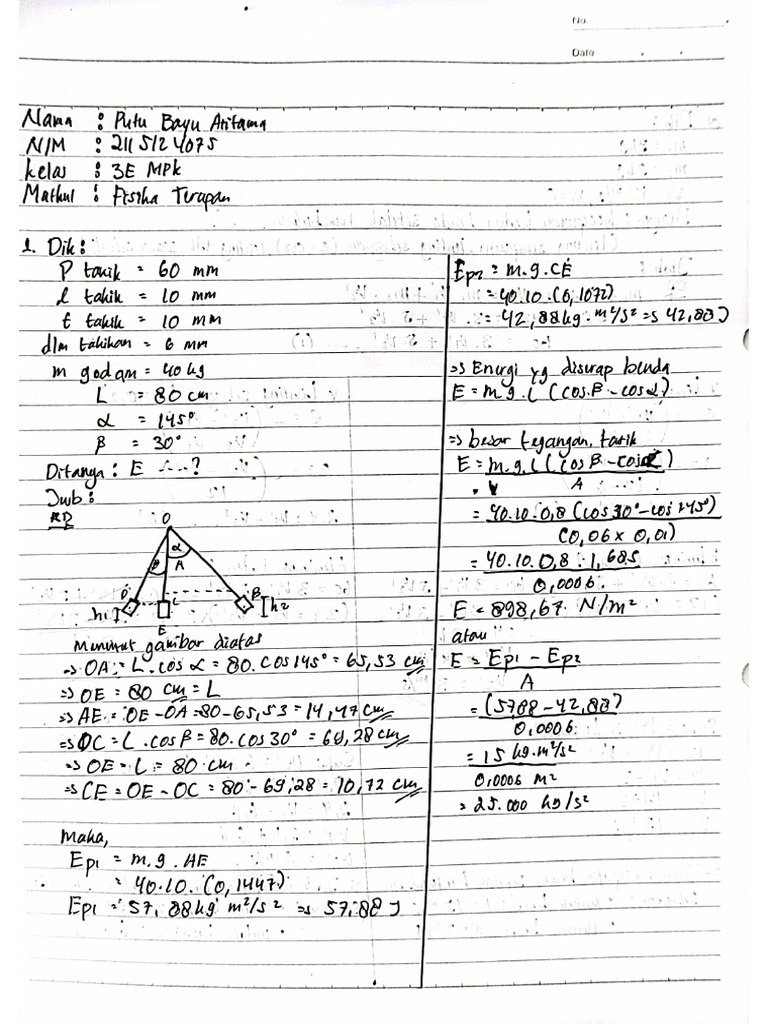 No.
Date
Nama : Putu Bayu Aritama
NIM : 2115124075
kelas : 3E MPk
Matkul : Fisika Terapan
1. Dik :
P takik = 60 mm
l takik = 10 mm
t takik = 10 mm
dlm takikan = 6 mm
m godam = 40 kg
L = 80 cm
α = 145°
β = 30°
Ditanya : E ....?
Jwb :
O
β α A
D B
h1 C h2
E
Menurut gambar diatas
⇒ OA = L . cos α = 80 . cos 145° = 65,53 cm
⇒ OE = 80 cm = L
⇒ AE = OE - OA = 80 - 65,53 = 14,47 cm
⇒ OC = L . cos β = 80 . cos 30° = 69,28 cm
⇒ OE = L = 80 cm
⇒ CE = OE - OC = 80 - 69,28 = 10,72 cm
Maka,
Ep1 = m . g . AE
= 40.10. (0,1447)
Ep1 = 57,88 kg m²/s² ⇒ 57,88 J
Ep2 = m . g . CE
= 40.10 . (0,1072)
= 42,88 kg . m²/s² ⇒ 42,88 J
⇒ Energi yg diserap benda
E = m . g . l (cos β - cos α)
⇒ besar tegangan tarik
E = m . g . l (cos β - cos α)
A
= 40.10.0,8 (cos 30° - cos 145°)
(0,06 x 0,01)
= 40.10.0,8 . 1,685
0,0006
E = 898,67 N/m²
atau
E = Ep1 - Ep2
A
= (57,88 - 42,88)
0,0006
= 15 kg.m²/s²
0,0006 m²
= 25.000 kg/s²